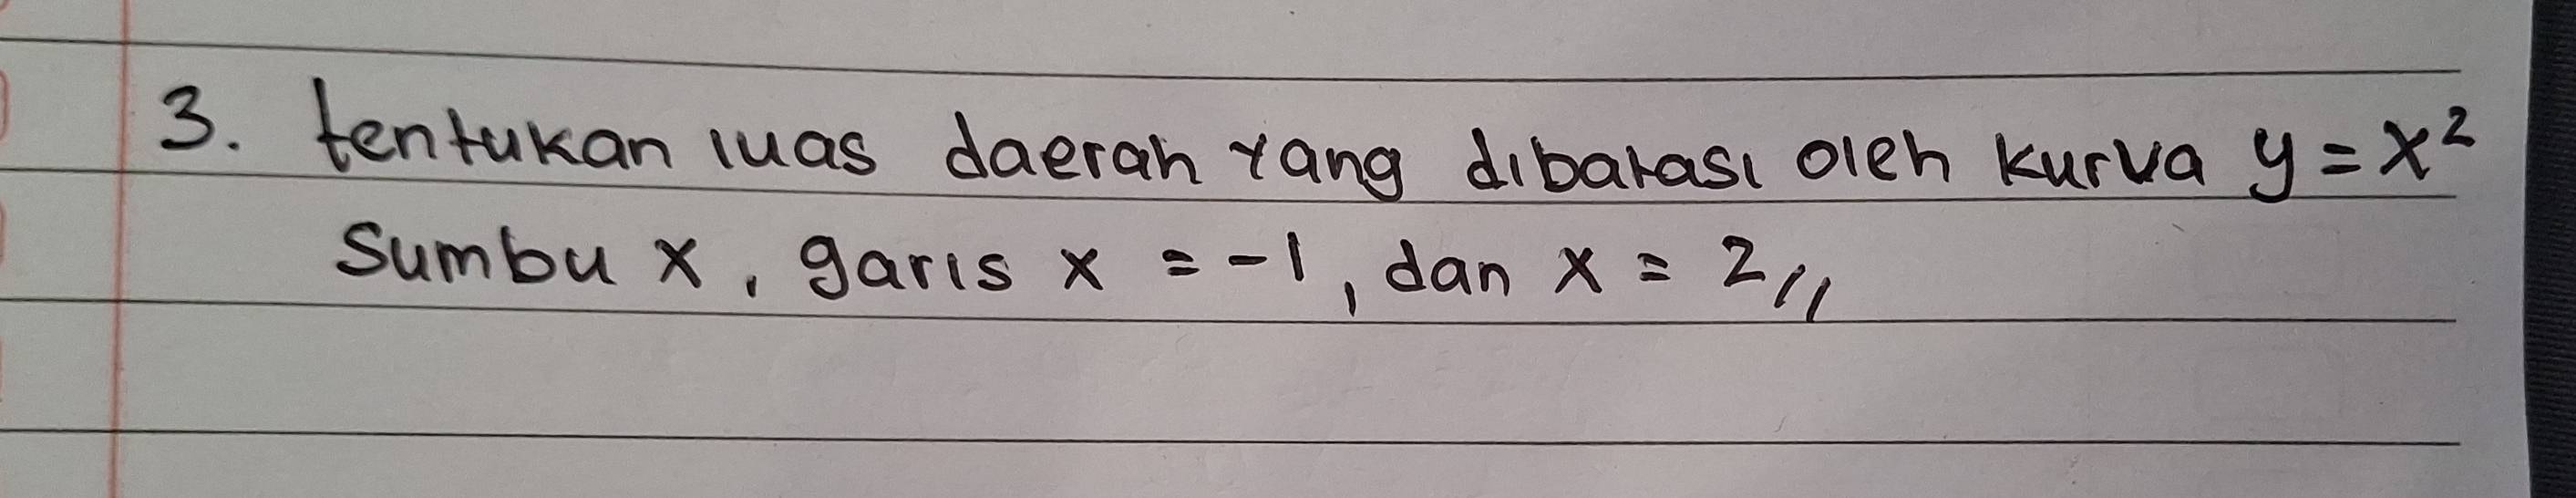 3. tentukan luas daerah yang dibatasi oleh kurva y = x²
Sumbu x, garis x = -1, dan x = 2 //